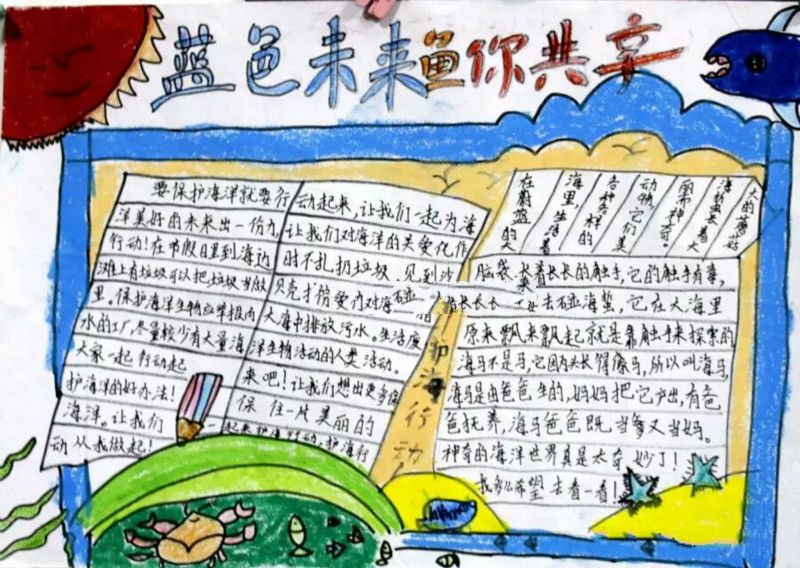 蓝色未来鱼你共辛
要保护海洋就要行动起来,让我们一起为海
洋美好的未来出一份力 让我们对海洋的关爱化作
行动!在节假日里到海边 时不扎扔垃圾,见到沙
滩上有垃圾可以把垃圾 放 贝壳 爱 对海
里。保护海洋生物应举报向 大海中排放污水。生活废
水的工厂,尽量较少有大量海洋生物活动的人类活动。
大家一起行动起来吧!让我们想出更多保
护海洋的好办法! 保住一片美丽的
海洋。让我们一起来护海行动,护海行
动从我做起!
护海行动
在蔚蓝的大
海里,生活着
各种各样的
动物,它们美
丽而神奇。
海蜇长着大
大的蘑菇
脑袋,长着长长的触手,它的触手有毒,
长长 去碰海蜇,它在大海里
原来飘来飘起就是靠触手来探索的
海马不是马,它因为头长得像马,所以叫海马,
海马是由爸爸生的,妈妈把它产出,有爸
爸抚养,海马爸爸既当爹又当妈。
神奇的海洋世界真是太奇妙了!
我多么希望去看一看!